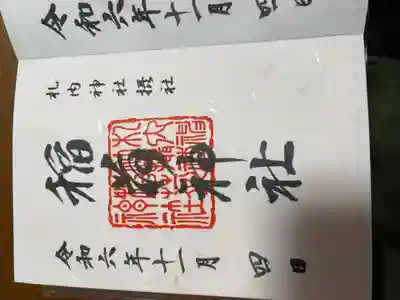 令和六年十一月四日
札内神社摂社
稲荷神社
令和六年十一月四日